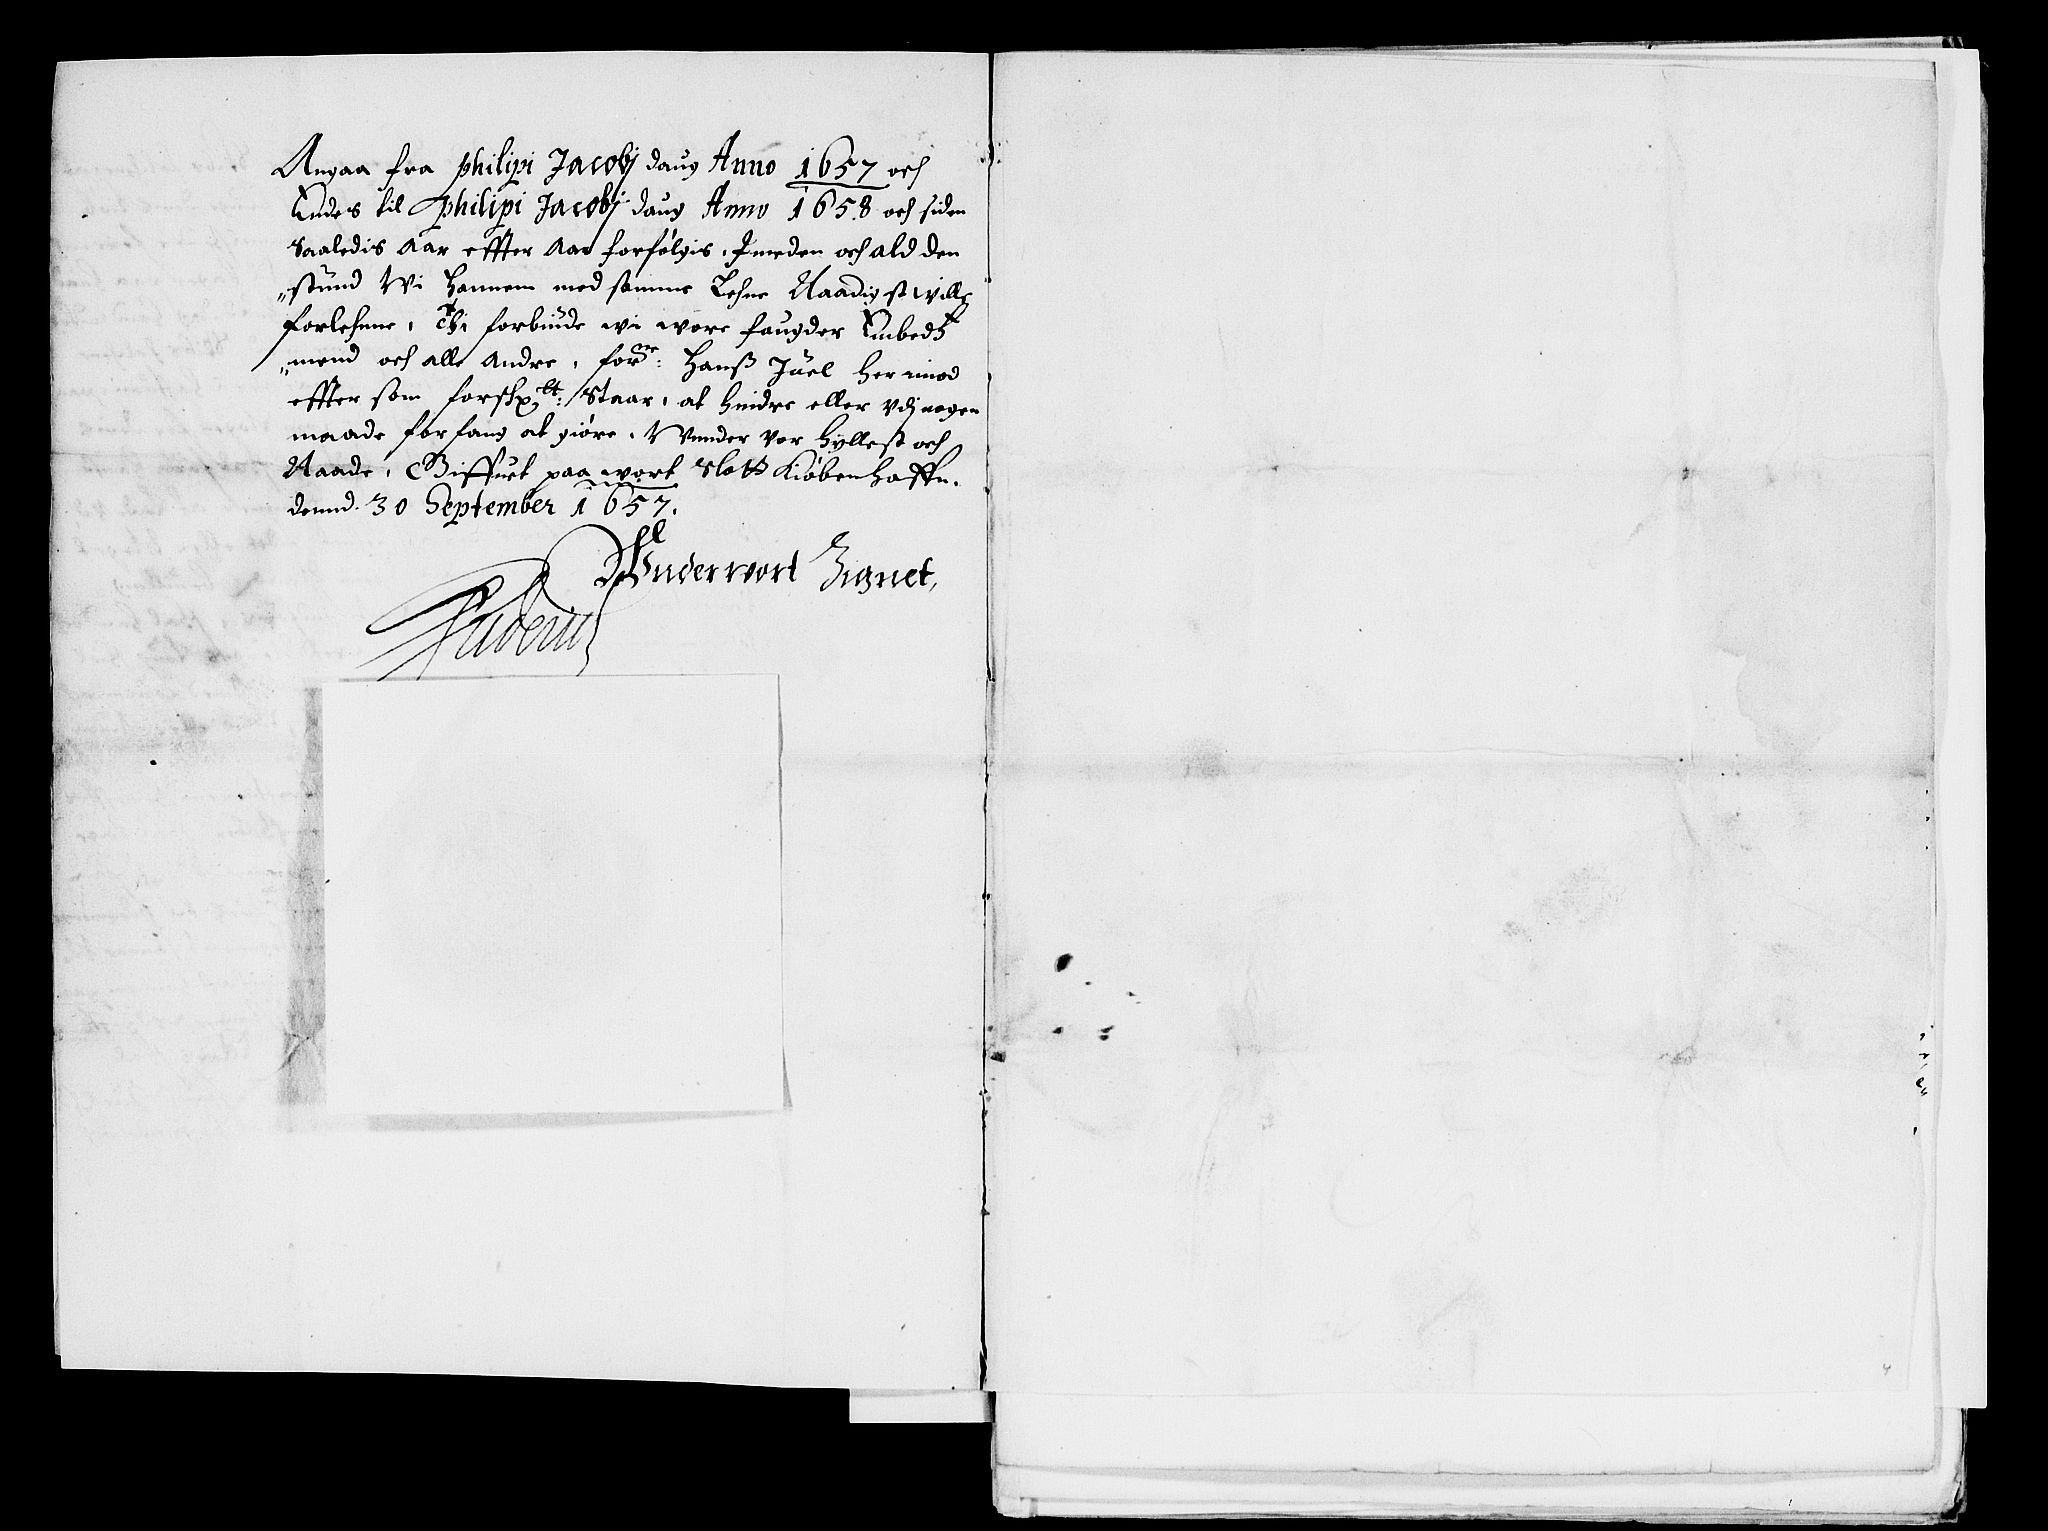 Angaa fra Philipi Jacobj daug Anno 1657 och
Endes til Philipi Jacobj daug Anno 1658 och siden
saaledis Aar effter Aar forfølgis. Imeden och ald den
"stund Wi hannem med samme Lehne Naadigst wille
forlehne, Thi forbiude wi wore faugder Embedz
"mend och alle Andre, forne: Hanß Juel her imod
effter som forschr: staar, at hindre eller vdj nogen
maade forfang at giøre. Wnder vor hyllest och
Naade, Giffuet paa wort Slott Kiøbenhaffn.
dennd. 30 September 1657.
Wnder wort Zignet,
Friderich
4